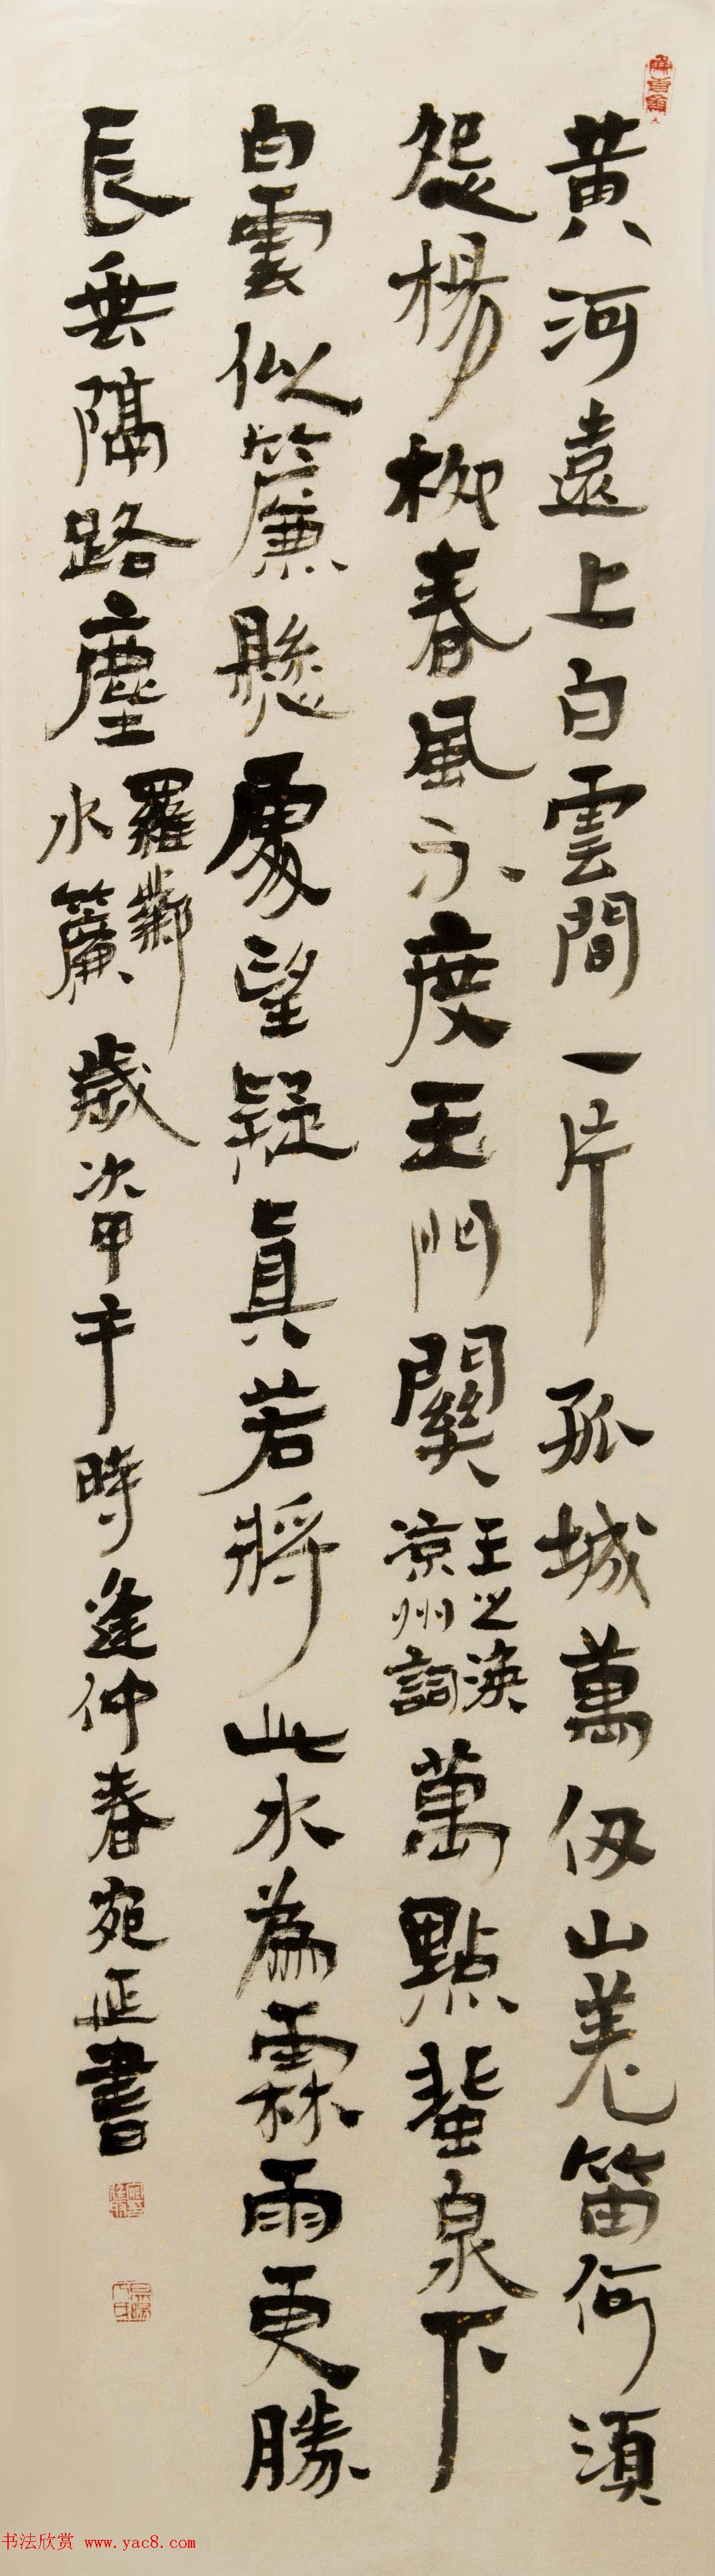 黄河遠上白雲間一片孤城萬仞山羌笛何須
怨楊柳春風不度玉門關
王之渙
涼州詞
萬點蜚泉下
白雲似簾懸處望疑真若將此水為霖雨更勝
長垂隔路塵
羅鄴
水簾
歲次甲午時逢仲春宛書
书法欣赏 www.yac8.com